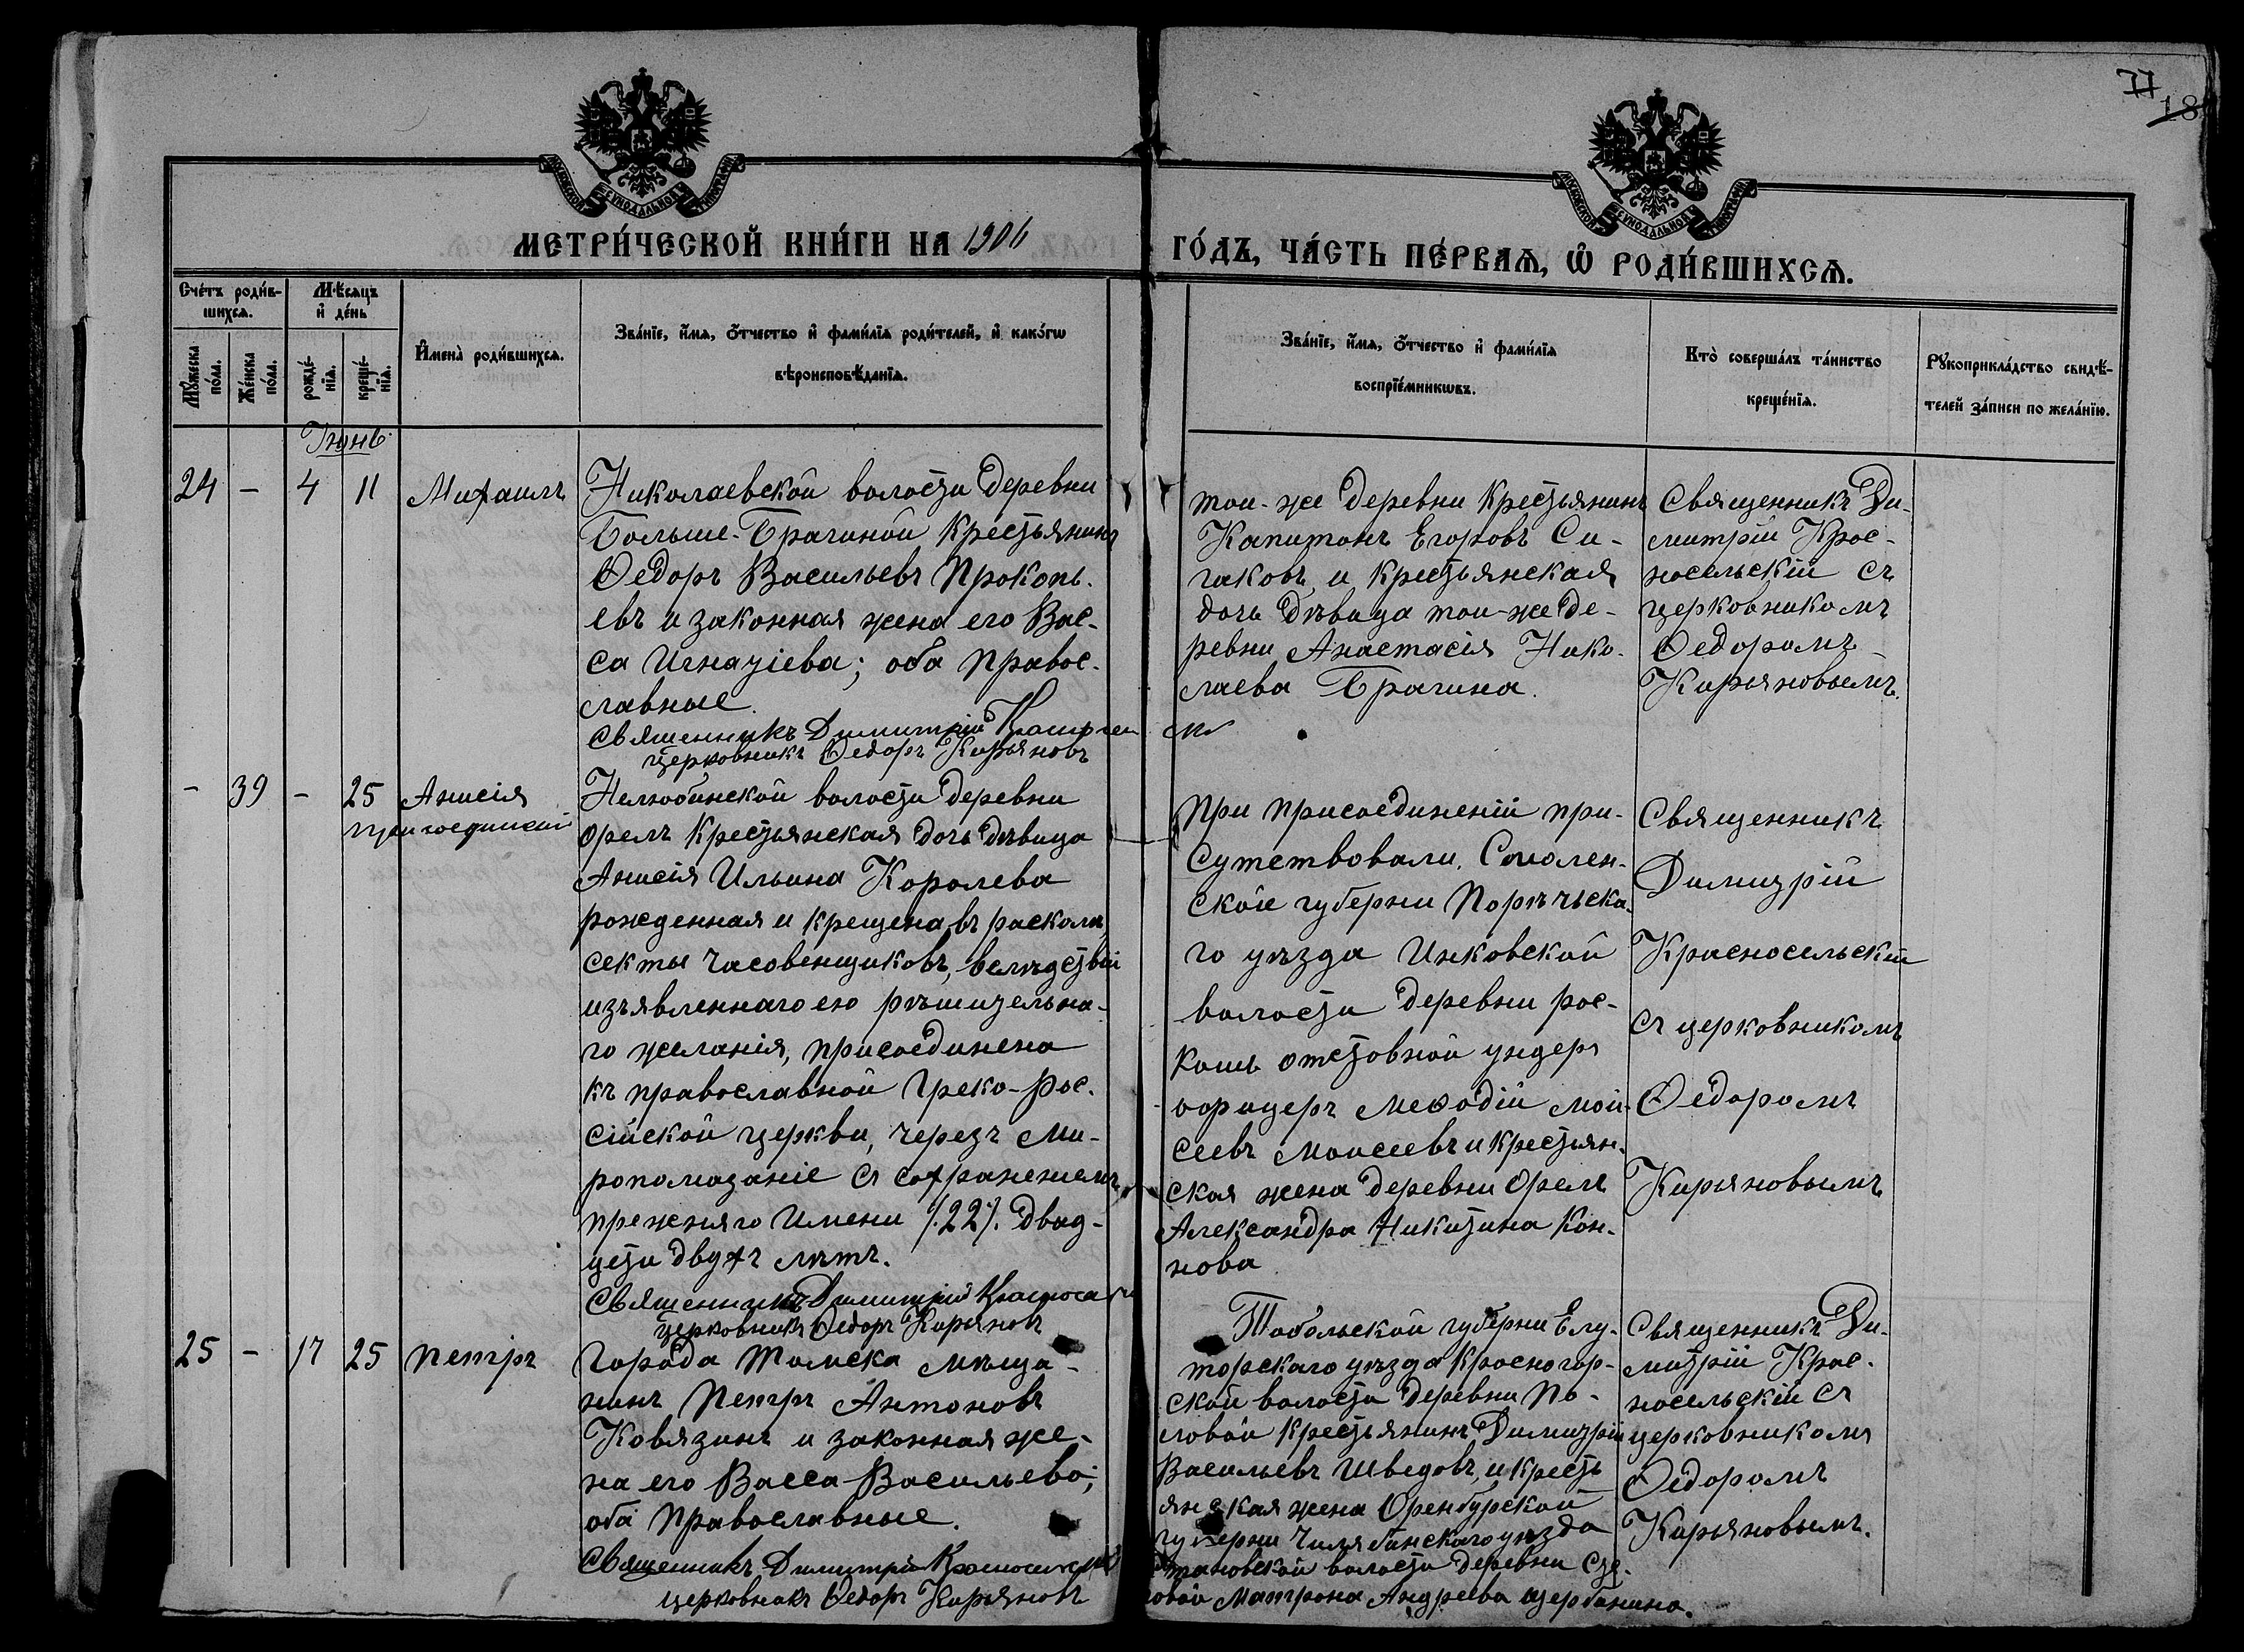 71
18
МЕТРИ́ЧЕСКОЙ КНИ́ГИ НА 1906
ГО́ДЪ, ЧА́СТЬ ПЕ́РВАѦ, Ѡ҆ РОДИ́ВШИХСѦ.
Сче́тъ роди́в-
шихсѧ.
Мѣ́сѧцъ
и҆ де́нь
Мꙋжеска
по́ла.
Же́нска
по́ла.
рожде́-
нїѧ.
креще́-
нїѧ.
И҆мена̀ роди́вшихсѧ.
Зва́нїе, и҆́мѧ, ѻ҆́тчество и҆ фами́лїѧ роди́телей, и҆ како́гѡ
вѣроисповѣ́данїѧ.
Зва́нїе, и҆́мѧ, ѻ҆́тчество и҆ фами́лїѧ
воспрїе́мникѡвъ.
Кто̀ соверша́лъ та́инство
креще́нїѧ.
Рꙋкоприкла́дство свидѣ́-
телей за́писи по жела́нїю.
Іюнь
24 - 4 11 Михаилъ
Николаевской волости деревни
Больше-Брагиной крестьянинъ
Ѳедоръ Васильевъ Прокопь-
евъ и законная жена его Вас-
са Игнатіева; оба правос-
лавные.
Священникъ Димитрій
церковникъ Ѳедоръ Кирьяновъ
той-же деревни крестьянинъ
Капитонъ Егоровъ Си-
гаковъ и крестьянская
дочь дѣвица той-же де-
ревни Анастасія Нико-
лаева Брагина.
Священникъ Ди-
митрій Крас-
носельскій съ
церковникомъ
Ѳедоромъ
Кирьяновымъ.
- 39 - 25 Анисія
присоединена
Нелюбинской волости деревни
Орелъ крестьянская дочь дѣвица
Анисія Ильина Королева
рожденная и крещена въ расколѣ
секты часовенщиковъ, вслѣдствіи
изъявленнаго ею рѣшительна-
го желанія, присоединена
къ православной Греко-Рос-
сійской церкви, черезъ Ми-
ропомазаніе съ сохраненіемъ
прежняго Имени /22/. Двад-
цети двухъ лѣтъ.
Священникъ Димитрій
церковникъ Ѳедоръ Кирьяновъ
При присоединеній при-
сутствовали. Смолен-
ской губерни Порѣчьска-
го уѣзда Инковской
волости деревни рос-
кошь отставной ундеръ
офицеръ Меѳодій Мои-
сеевъ Моисеевъ и крестьян-
ская жена деревни Орелъ
Александра Никитина Кон-
нова
Священникъ
Димитрій
Красносельскій
съ церковникомъ
Ѳедоромъ
Кирьяновымъ
25 - 17 25 Петръ
Города Томска мѣща-
нинъ Петръ Антоновъ
Ковязинъ и законная же-
на его Васса Васильева;
оба православные.
Священникъ Димитрій
церковникъ Ѳедоръ Кирьяновъ
Тобольской губерни Елу-
торскаго уѣзда Красногор-
ской волости деревни По-
ловой крестьянинъ Димитрій
Васильевъ Шведовъ, и кресть
янская жена Оренбурской
губерни Челябинскаго уѣзда
волости деревни
Матрона Андреева Щербинина.
Священникъ Ди-
митрій Крас-
носельскій съ
церковникомъ
Ѳедоромъ
Кирьяновымъ.